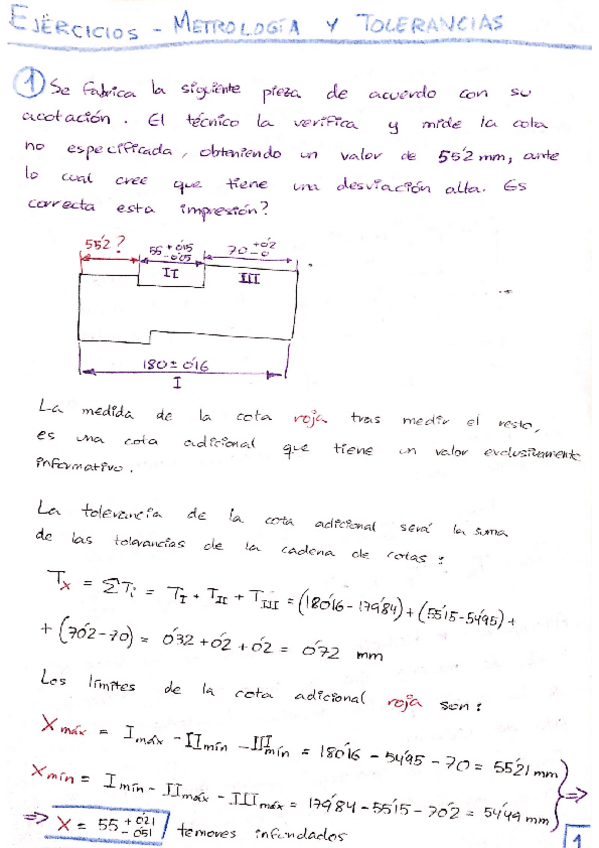 EJERCICIOS - METROLOGÍA Y TOLERANCIAS
1 Se fabrica la siguiente pieza de acuerdo con su
acotación. El técnico la verifica y mide la cota
no especificada, obteniendo un valor de 55'2 mm, ante
lo cual cree que tiene una desviación alta. Es
correcta esta impresión?
55'2? 55 +0'15 -0'05 70 +0'2 -0
II III
180 ± 0'16
I
La medida de la cota roja tras medir el resto,
es una cota adicional que tiene un valor exclusivamente
informativo.
La tolerancia de la cota adicional será la suma
de las tolerancias de la cadena de cotas:
Tx = ΣTi = TI + TII + TIII = (180'16 - 179'84) + (55'15 - 54'95) +
+ (70'2 - 70) = 0'32 + 0'2 + 0'2 = 0'72 mm
Los límites de la cota adicional roja son:
Xmáx = Imáx - IImín - IIImín = 180'16 - 54'95 - 70 = 55'21 mm
Xmín = Imín - IImáx - IIImáx = 179'84 - 55'15 - 70'2 = 54'49 mm ⇒
⇒ X = 55 +0'21 -0'51 temores infundados
1